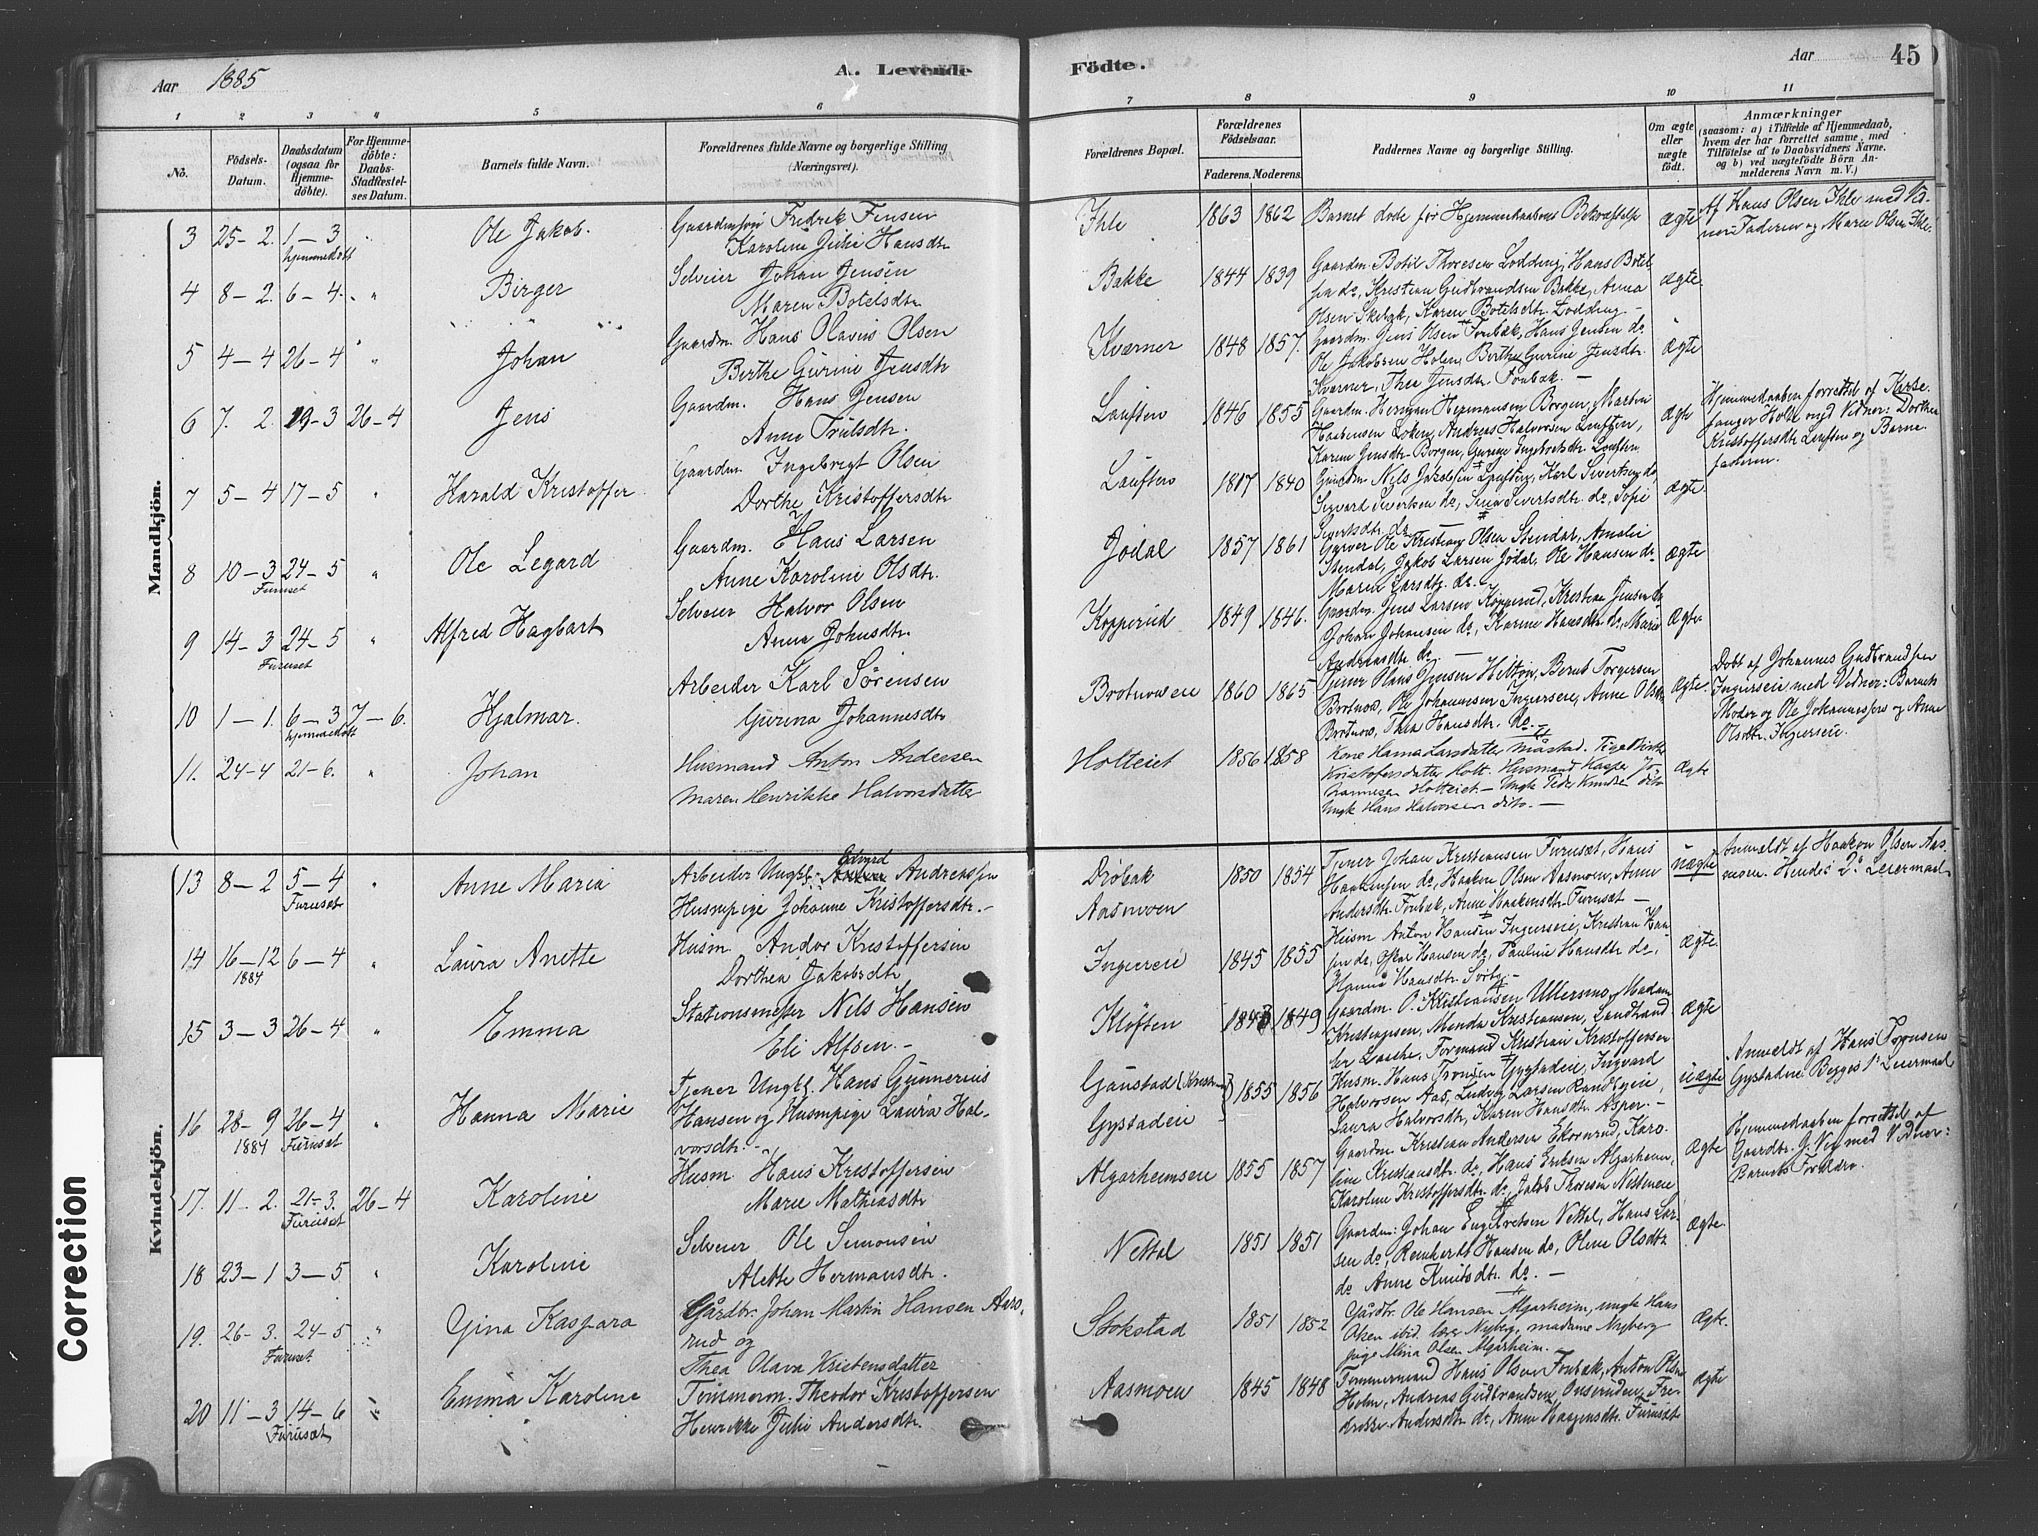 Aar 1885
A. Levende
Födte.
Aar
45
1 2 3 4 5 6 7 8 9 10 11
No.
Födsels-
Datum.
Daabsdatum
(ogsaa for
Hjemme-
döbte).
For Hjemme-
döbte:
Daabs-
Stadfæstel-
ses Datum.
Barnets fulde Navn.
Forældrenes fulde Navne og borgerlige Stilling
(Næringsvei).
Forældrenes Bopæl.
Forældrenes
Födselsaar.
Faderens. Moderens.
Faddernes Navne og borgerlige Stilling.
Om ægte
eller
uægte
födt.
Anmærkninger
(saasom: a) i Tilfælde af Hjemmedaab,
hvem der har forrettet samme, med
Tilföielse af to Daabsvidners Navne.
og b) ved uægtefödte Börn An-
melderens Navn m. V.)
Mandkjön.
3 25-2. 1-3 " Ole Jakob.
hjemmedöbt
Gaardmsön Fredrik Jensen
Karoline Julie Hansdtr
Ihle 1863 1862
Barnet döde før Hjemmedaabens Bekræftelse
ægte
Af Hans Olsen Ihle med Vid-
ner: Faderen og Maren Olsen Ihle.
4 8-2. 6-4. " Birger
Selveier Johan Jensen
Maren Botelsdtr
Bakke 1844 1839
Gaardm. Botil Thoresen Lodding, Hans Botel-
sen do, Kristian Gudbrandsen Bakke, Anna
Olsen Skebæk, Karen Botelsdtr Lodding -
ægte
5 4-4 26-4 " Johan
Gaardm. Hans Olavus Olsen
Berthe Gurine Jensdtr
Kværner 1848 1857.
Gaardm. Jens Olsen Fonbæk, Hans Jensen do
Ole Jakobsen Holen, Berthe Gurine Jensdtr.
Kværner, Thea Jensdtr Fonbæk. -
ægte
6 7. 2. 19-3 26-4 Jens
Gaardm. Hans Jensen
Anne Trulsdtr.
Lauften 1846 1855
Gaardm. Herman Hermansen Borgen, Martin
Haakensen Løken, Andreas Halvorsen Lauften,
Karen Jensdtr Borgen, Gurine Ingebretsdtr Lauften
ægte
Hjemmedaaben forrettet af Kirke-
sanger Holte med Vidner: Dorthea
Kristoffersdtr Lauften og Barne-
faderen.
7 5-4 17-5 " Harald Kristoffer
Gaardm. Ingebrigt Olsen
Dorthe Kristoffersdtr
Lauften 1817 1840
Gaardm. Nils Jakobsen Lauften, Karl Sivertsen do,
Sigvard Sivertsen do, Lina Sivertsdtr. do, Sofie
Sivertsdtr. do
ægte.
8 10-3 24-5 " Ole Legard
Furuset
Gaardm. Hans Larsen
Anne Karoline Olsdtr.
Jødal 1857 1861
Garver Ole Kristian Olsen Stendal, Amalie
Stendal, Jakob Larsen Jödal, Ole Hansen do-
Maren Larsdtr. do. -
ægte
9 14-3 24-5 " Alfred Hagbart
Furuset
Selveier Halvor Olsen
Anna Johnsdtr.
Kopperud 1849 1846.
Gaardm. Jens Larsen Kopperud, Kristian Jensen do
Johan Johansen do, Karen Hansdtr. do, Marie
Andreasdtr. do -
ægte
10 1-1. 6-3 7-6. Hjalmar.
hjemmedöbt
Arbeider Karl Sörensen
Gurina Johannesdtr
Brotnoseie 1860 1865
Tjener Hans Jensen Hilton, Bernt Torgersen
Brotnos, Ole Johannesen Ingerseie, Anne Olsdtr
Brotnos, Thea Hansdtr. do. -
ægte
Döbt af Johannes Gudbrandsen
Ingerseie med Vidner: Barnets
Moder og Ole Johannessen og Anne
Olsdtr. Ingerseie.
11. 24-4 21-6. " Johan
Husmand Anton Andersen
Maren Henrikke Halvorsdatter
Holteiet 1856 1858
Kone Hanna Larsdatter Måstad. Pige Birthe
Kristofersdatter Holt. Husmand Kasper Jo-
hannesen Holteiet - Ungk Peder Knudsen ditto
Ungk Hans Halvorsen ditto. -
ægte
Kvindekjön.
13 8-2 5-4 " Anne Maria
Furuset
Arbeider Ungkl. Edvard Andreassen
Huspige Johanne Kristoffersdtr. -
Dröbak
Aasmoen 1850 1854
Tjener Johan Kristiansen Furuset, Hans
Haakensen do, Haaken Olsen Aasmoen, Anne
Andersdtr Fonbæk, Anne Haakensdtr Furuset -
uægte
Anmeldt af Haakon Olsen Aas-
moen. Hendes 2det Leiermaal
14 16-12 6-4 " Laura Anette
1884
Husm. Andor Kristoffersen
Dorthea Jakobsdtr
Ingerseie 1845 1855
Husm Anton Hansen Ingerseie, Kristian Han-
sen do, Oskar Hansen do, Pauline Hansdtr do,
Hanna Hansdtr Sörby -
ægte
15 3-3 26-4 " Emma
Stationsmester Nils Hansen
Eli Alfsen -
Klöften 1849
Gaardm. O. Kristiansen Ullersmo, Madam
Kristiansen, Menda Kristiansen, Landhand-
ler Lasche, Formand Kristian Kristoffersen
ægte
16 28-9 26-4 " Hanna Marie
1884 Furuset
Tjener Ungkl. Hans Gunnerius
Hansen og Huspige Laura Hal-
vorsdtr. -
Gaustad (Kristiania)
Gystadeie 1855 1856
Husm. Hans Tronsen Gystadeie, Ingvard
Halvorsen Aas, Ludvig Larsen Randbyeie,
Laura Halvorsdtr, Karen Hansdtr. Asper. -
uægte
Anmeldt af Hans Tronsen
Gystadeie. Begges 1ste Leiermaal
17. 11-2. 21-3. 26-4 Karoline
Furuset
Husm. Hans Kristoffersen
Marie Mathiasdtr
Algarheimseie 1855 1857
Gaardm. Kristian Andersen Ekornrud, Karo-
line Kristiansdtr. do, Hans Eriksen Algarheim,
Karoline Kristoffersdtr do, Jakob Thoresen Nettmeie
ægte
Hjemmedaaben forrettet af
Gaardbr. J. Ney med Vidner:
Barnets Forældre.
18 23-1 3-5 " Karoline
Selveier Ole Simonsen
Alette Hermansdtr.
Nettel 1851 1851
Gaardm: Johan Engebretsen Nettel, Hans Lar-
sen do, Reinhardt Hansen do, Oline Olsdtr
do Anne Knutsdtr. do. -
ægte.
19. 26-3. 24-5 " Gina Kaspara
Furuset
Gårdbr. Johan Martin Hansen Aaro-
rud og
Thea Olava Kristensdatter
Stokstad 1851 1852
Gårdbr. Ole Hansen Algarheim, ungk Hans
Olsen ibid. lærer Nyberg, madame Nyberg
pige Mina Olsen Algarheim.
ægte.
20 11-3 14-6 " Emma Karoline
Furuset
Tömmerm. Theodor Kristoffersen
Henrikke Julie Andersdtr.
Aasmoen 1845 1848
Tømmermand Hans Olsen Fonbæk, Anton Olsen
Holm, Andreas Gudbrandsen, Onsruden, Fre-
drikke Andersdtr do, Anne Haagensdtr. Furuset
ægte
Correction